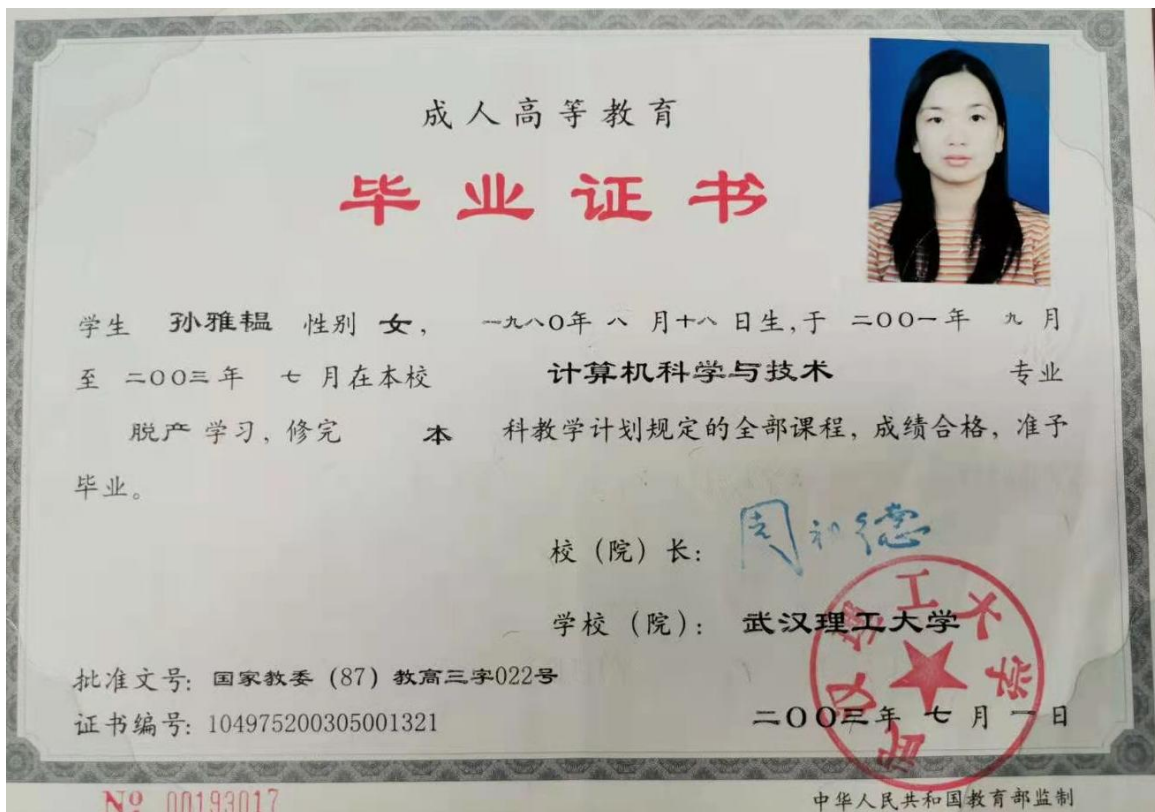 成人高等教育
毕业证书
学生 孙雅韫 性别 女, 一九八〇年 八 月十八 日生,于 二〇〇一年 九 月
至 二〇〇三年 七 月在本校 计算机科学与技术 专业
脱产 学习, 修完 本 科教学计划规定的全部课程, 成绩合格, 准予
毕业。
校（院）长: 周祖德
学校（院）: 武汉理工大学
武汉理工大学
批准文号: 国家教委 (87) 教高三字022号
证书编号: 104975200305001321
二〇〇三年 七 月 一 日
№ 00193017
中华人民共和国教育部监制